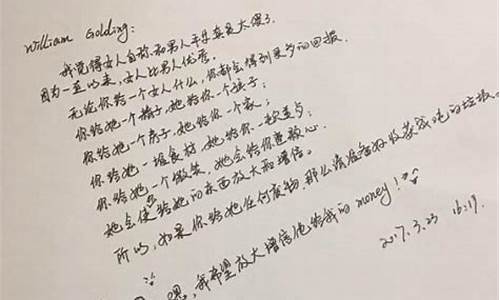 William Golding:
我觉得女人自称和男人平等真是太傻了.
因为一直以来,女人比男人优秀.
无论你给一个女人什么,你都会得到更多的回报.
你给她一个精子,她给你一个孩子;
你给她一个房子,她给你一个家;
你给她一堆食材,她给你一顿美餐;
你给她一个微笑,她会给你整颗心.
她会使给她的东西放大和增倍.
所以,如果你给她任何废物,那么请准备好收获成吨的垃圾。
嗯,我希望放大增倍他给我的money!
2017.3.23 16:19